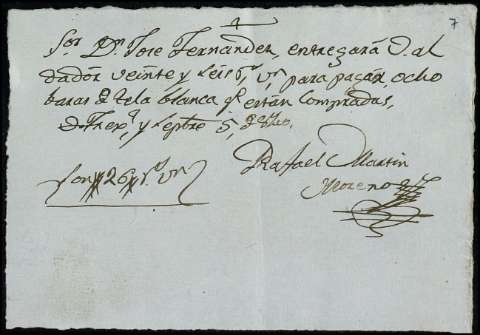 7
Sor. Dn. Jose Fernandez, entregará V. al
dador veinte y seis rs. vn. para pagar, ocho
baras de tela blanca qe. estan compradas,
y Septbre 5, de
Son 26 rs. vn.
Rafael Martin
Moreno